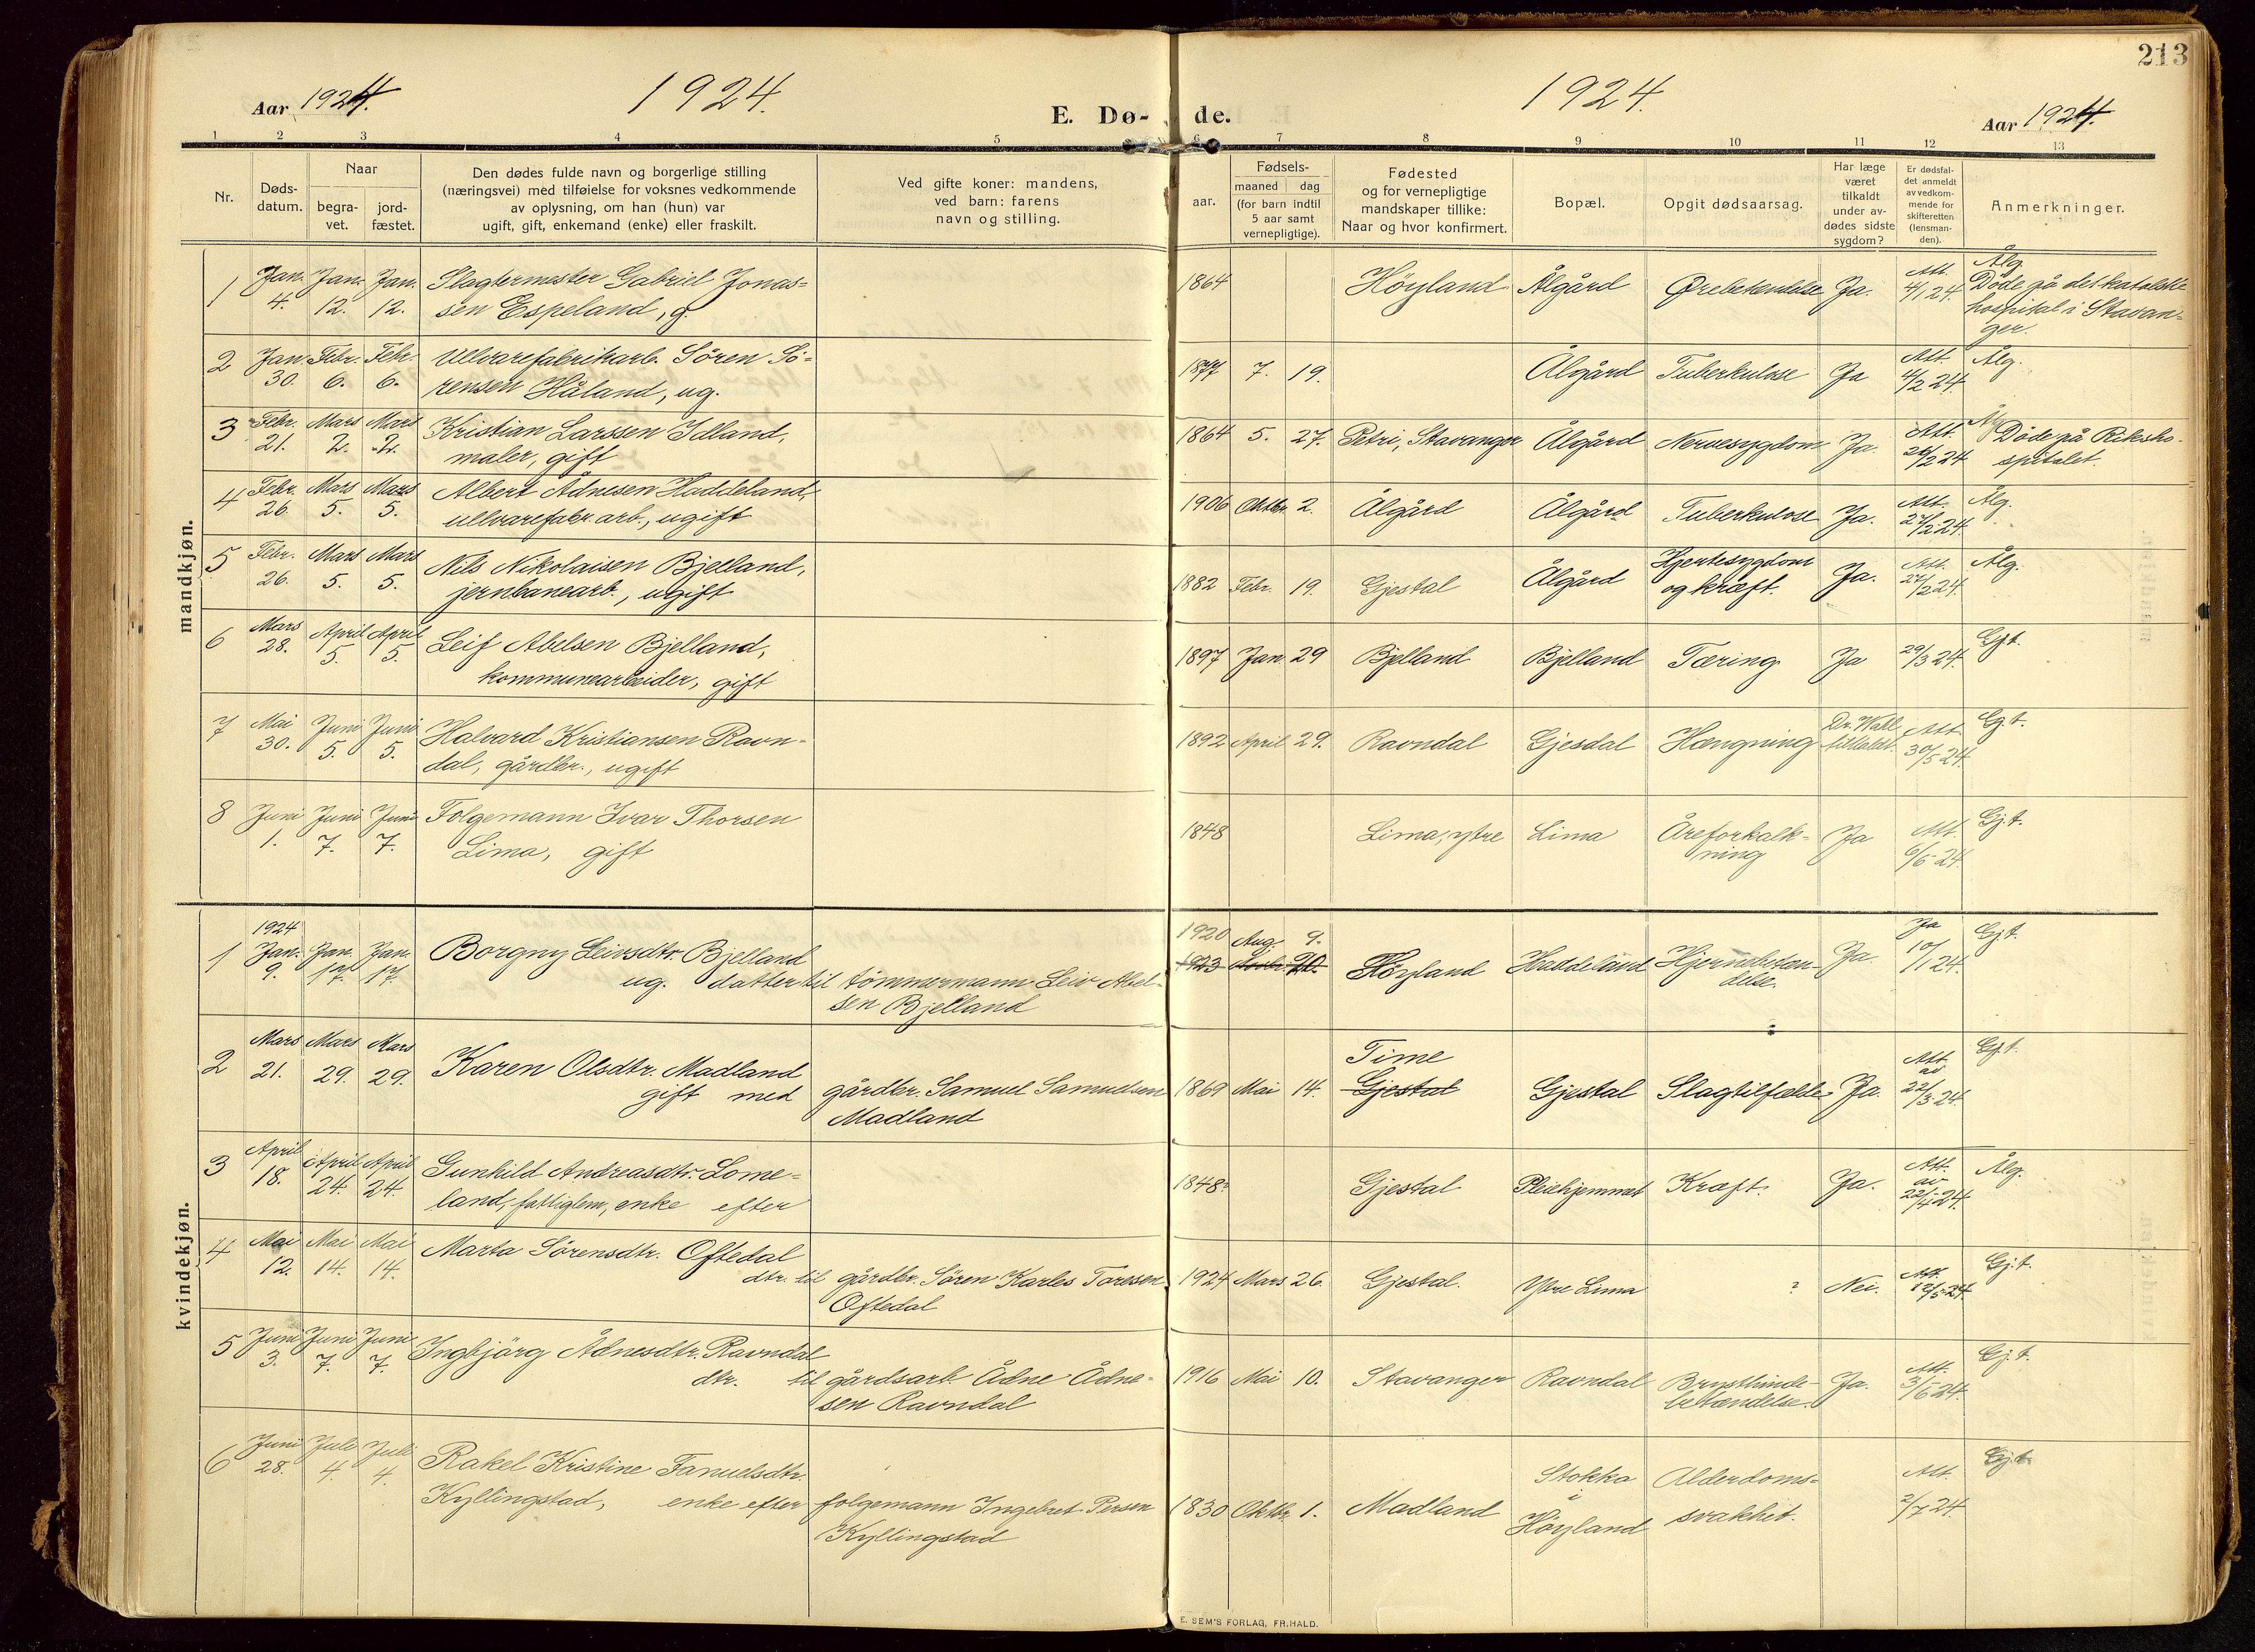 213
Aar 1924. 1924. E. Dø- de. 1924. Aar 1924.
1 2 3 4 5 6 7 8 9 10 11 12 13
Nr.
Døds-
datum.
Naar
begra-
vet.
jord-
fæstet.
Den dødes fulde navn og borgerlige stilling
(næringsvei) med tilføielse for voksnes vedkommende
av oplysning, om han (hun) var
ugift, gift, enkemand (enke) eller fraskilt.
Ved gifte koner: mandens,
ved barn: farens
navn og stilling.
Fødsels-
aar.
maaned dag
(for barn indtil
5 aar samt
vernepligtige).
Fødested
og for vernepligtige
mandskaper tillike:
Naar og hvor konfirmert.
Bopæl.
Opgit dødsaarsag.
Har læge
været
tilkaldt
under av-
dødes sidste
sygdom?
Er dødsfal-
det anmeldt
av vedkom-
mende for
skifteretten
(lensman-
den).
Anmerkninger.
mandkjøn.
1 Jan. 4. Jan. 12. Jan. 12. Slagtermester Gabriel Jonas-
sen Espeland, g.
1864 Höyland Ålgård Ja. Att. 4/1 24. Ålg.
Döde på det katolske
hospital i Stavan-
ger.
2 Jan 30. Febr. 6. Febr. 6. Ullvarefabrikarb. Sören Sö-
rensen Håland, ug.
1877 7. 19. Ålgård Tuberkulose Ja Att. 4/2 24. Ålg.
3 Febr. 21. Mars 2. Mars 2. Kristian Larssen Idland,
maler, gift
1864 5. 27. Petri, Stavanger Ålgård Nervesygdom Ja. Att. 2/2 24 Ålg. Döde på Riksho-
spitalet.
4 Febr. 26. Mars 5. Mars 5. Albert Ådnesen Haddeland,
ullvarefabr. arb., ugift
1906 Oktbr. 2. Ålgård Ålgård Tuberkulose Ja. Att. 27/2 24. Ålg.
5 Febr. 26. Mars 5. Mars 5. Nils Nikolaisen Bjelland,
jernbanearb., ugift
1882 Febr. 19. Gjestal Ålgård Hjertesygdom
og kræft. Ja. Att. 27/2 24. Ålg.
6 Mars 28. April 5. April 5. Leif Abelsen Bjelland,
kommunearbeider, gift
1897 Jan 29 Bjelland Bjelland Tæring Ja 29/3 24. Gjt.
7 Mai 30. Juni 5. Juni 5. Halvard Kristiansen Ravn-
dal, gårdbr., ugift
1892 April 29. Ravndal Gjesdal Hængning Dr. Wall
tilkaldt. Att. 30/5 24. Gj.t.
8 Juni 1. Juni 7. Juni 7. Folgemann Ivar Thorsen
Lima, gift
1848 Lima, ytre Lima Åreforkalk-
ning Ja Att. 6/6 24. Gj.t.
kvindekjøn.
1924
1 Jan. 9. Jan. 17. Jan. 17. Borgny Leivsdtr. Bjelland
ug. datter til tömmermann Leiv Abel-
sen Bjelland
1920 Aug. 9.
1923 20. Höyland Haddeland Hjernebetæn-
delse. Ja. Ja 10/1 24. Gj.t.
2 Mars 21. Mars 29. Mars 29. Karen Olsdtr. Madland
gift med gårdbr. Samuel Samuelsen
Madland
1869 Mai 14. Time
Gjestal Gjestal Slagtilfælde Ja. Att. av 22/3 24. Gj.t.
3 April 18. April 24. April 24. Gunhild Andreasdtr. Lome-
land, fattiglem, enke efter
1848? Gjestal Pleiehjemmet Kræft. Ja. Att. av 22/4 24. Ålg.
4 Mai 12. Mai 14. Mai 14. Marta Sörensdtr. Oftedal
dtr. til gårdbr. Sören Karles Toresen
Oftedal
1924 Mars 26. Gjestal. Ytre Lima ? Nei. Att. 12/5 24. Gj.t.
5 Juni 3. Juni 7. Juni 7. Ingbjörg Ådnesdtr. Ravndal
dtr. til gårdsarb. Ådne Ådne-
sen Ravndal
1916 Mai 10. Stavanger Ravndal Brysthinde-
betændelse. Ja. Att. 3/6 24. Gj.t.
6 Juni 28. Juli 4. Juli 4. Rakel Kristine Fanuelsdtr.
Kyllingstad, enke efter folgemann Ingebret Persen
Kyllingstad
1830 Oktbr. 1. Madland Stokka
i
Höyland Alderdoms-
svakhet. Att. 2/7 24. Gj.t.
E. SEM'S FORLAG, FR.HALD.